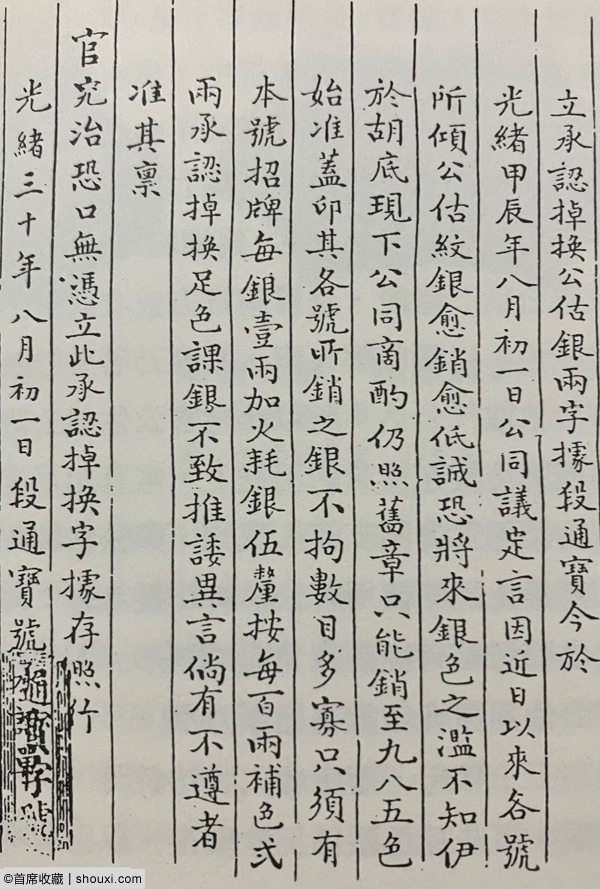 立承認掉换公估銀兩字據段通寶今於
光緒甲辰年八月初一日公同議定言因近日以來各號
所傾公估紋銀愈銷愈低誠恐將來銀色之濫不知伊
於胡底現下公同商酌仍照舊章只能銷至九八五色
始准蓋卯其各號所銷之銀不拘數目多寡只須有
本號招牌每銀壹兩加火耗銀伍釐按每百兩補色弍
兩承認掉换足色課銀不致推諉異言倘有不遵者
准其禀
官究治恐口無憑立此承認掉换字據存照行
光緒三十年八月初一日段通寶號
©首席收藏 | shouxi.com